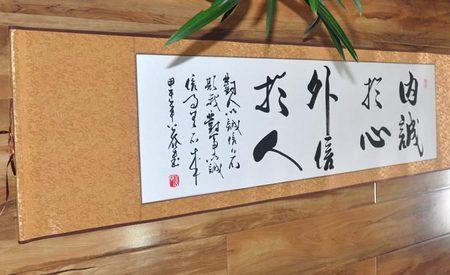 内誠
於心
外信
於人
對人以誠信人不
欺我對事以誠
信事無不成
甲午年